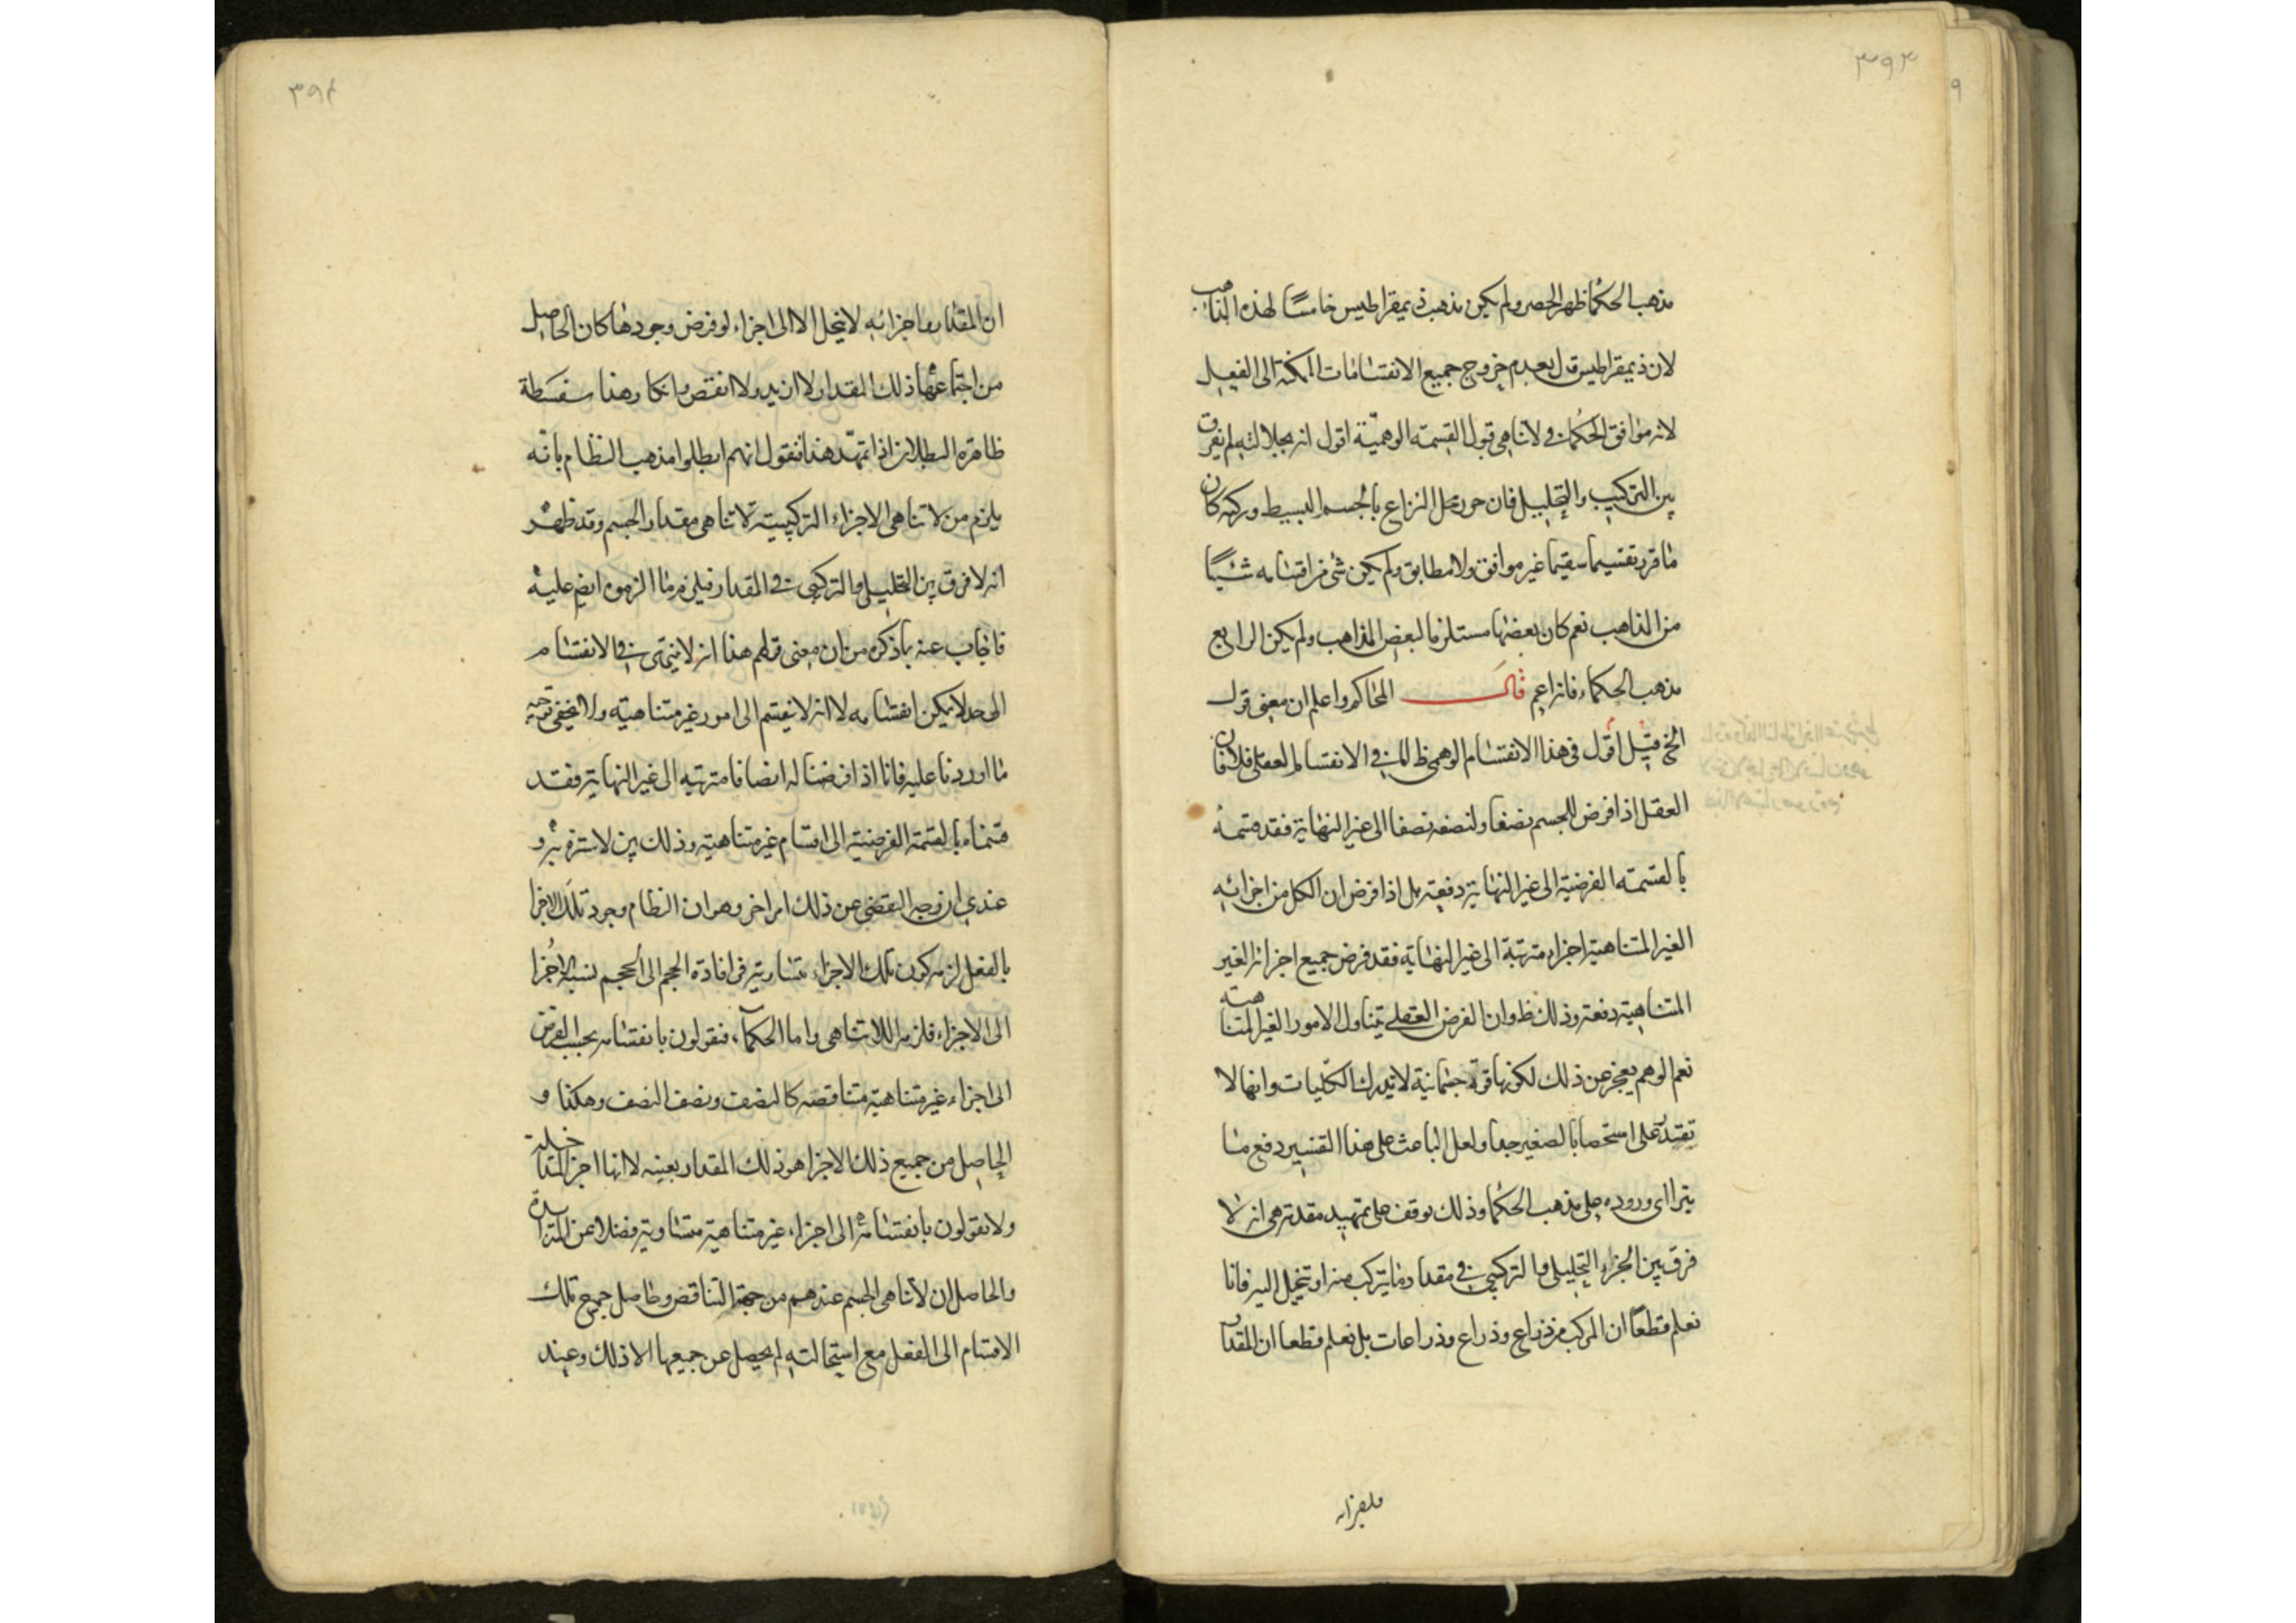 ٣٩٣
مذهب الحكما ظهر الحصر ولم يكن مذهب ذيمقراطيس خامسًا لهذه المذاهب
لان ذيمقراطيس قال بعدم خروج جميع الانقسامات الممكنة الى الفعل
لانه موافق الحكما في لا تناهى قبول القسمة الوهميّة اقول انه بجلالته لم يفرق
بين التركيب والتحليل فان حرر محل النزاع بالجسم البسيط وتركبه كان
ما قرره تقسيما سقيما غير موافق ولا مطابق ولم يكن شئ من اقسامه شيًا
من المذاهب نعم كان بعضها مستلزما لبعض المذاهب ولم يكن الرابع
مذهب الحكماء فانه اعم قال المحاكم واعلم ان معنى قوله
الخ قيل اقول في هذا الانقسام الوهمى ظ اما في الانقسام العقلى فلان
العقل اذا فرض للجسم نصفا ولنصفه نصفا الى غير النهاية فقد قسمه
بالقسمة الفرضية الى غير النهاية دفعة بل اذا فرض ان الكل من اجزائه
الغير المتناهية اجزاء مترتبة الى غير النهاية فقد فرض جميع اجزائه الغير
المتناهية دفعة وذلك ظ وان الفرض العقلى يتناول الامور الغير المتناهية
نعم الوهم يعجز عن ذلك لكونها قوة جسمانية لا يدرك الكليات وانها لا
تقتدر على استحضا بالصغير جدا ولعل الباعث على هذا التفسير دفع ما
يترااى وروده على مذهب الحكما وذلك يوقف على تمهيد مقدمة هى انه لا
فرق بين الجزء التحليلى والتركيبى في مقدار ما يتركب منه او تنحل اليه فانا
نعلم قطعًا ان المركب من ذراع وذراع وذراعات بل نعلم قطعا ان المقدار
٣٩٤
ان المقدار بما اجزائه لا ينحل الا الى اجزاء لو فرض وجودها كان الحاصل
من اجتماعها ذلك المقدار لا ازيد ولا انقص وانكار هذا سفسطة
ظاهرة البطلان اذا تمهّد هذا فنقول انهم ابطلوا مذهب النظام بانّه
يلزم من لا تناهى الاجزاء التركيبية لا تناهى مقدار الجسم وقد ظهر
انه لا فرق بين التحليلى والتركيبى في المقدار فيلزم ما الزموه ايضا عليه
فاجاب عنه بما ذكره من ان معنى قولهم هذا انه لا ينتهى في الانقسام
الى حد لا يمكن انقسامه لا انه لا ينقسم الى امور غير متناهية ولا يخفى توجه
ما اوردنا عليه فانا اذا فرضنا له انصافا مترتبه الى غير النهاية فقد
قسمناه بالقسمة الفرضية الى اقسام غير متناهية وذلك بين لا سترة به و
عندى ان وجه التفصى عن ذلك امر اخر وهو ان النظام وجود تلك الاجزا
بالفعل لزمه كون تلك الاجزاء متساوية فى افادة الحجم الى الحجم نسبة الاجزا
الى الاجزاء فلزم اللاتناهى واما الحكماء فيقولون بانقسامه بحسب الفرض
الى اجزاء غير متناهية متناقصه كالنصف ونصف النصف وهكذا و
الحاصل من جميع ذلك الاجزا هو ذلك المقدار بعينه لا انها اجزا المتداخلة
ولا يقولون بانقسامه الى اجزاء غير متناهية متساوية فضلا عن المتزايدة
والحاصل ان لا تناهى الجسم عندهم من جهة التناقص وحاصل جميع تلك
الاقسام الى الفعل مع استحالته لم يحصل عن جميعها الا ذلك وعند